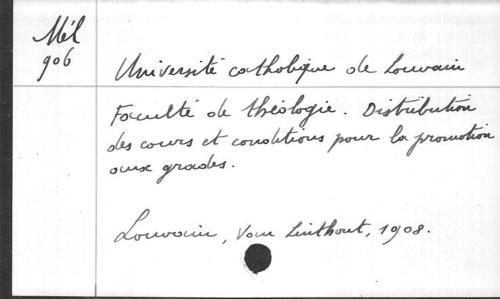 Mél
906
Université catholique de Louvain
Faculté de théologie. Distribution
des cours et conditions pour la promotion
aux grades.
Louvain, Van Linthout, 1908.